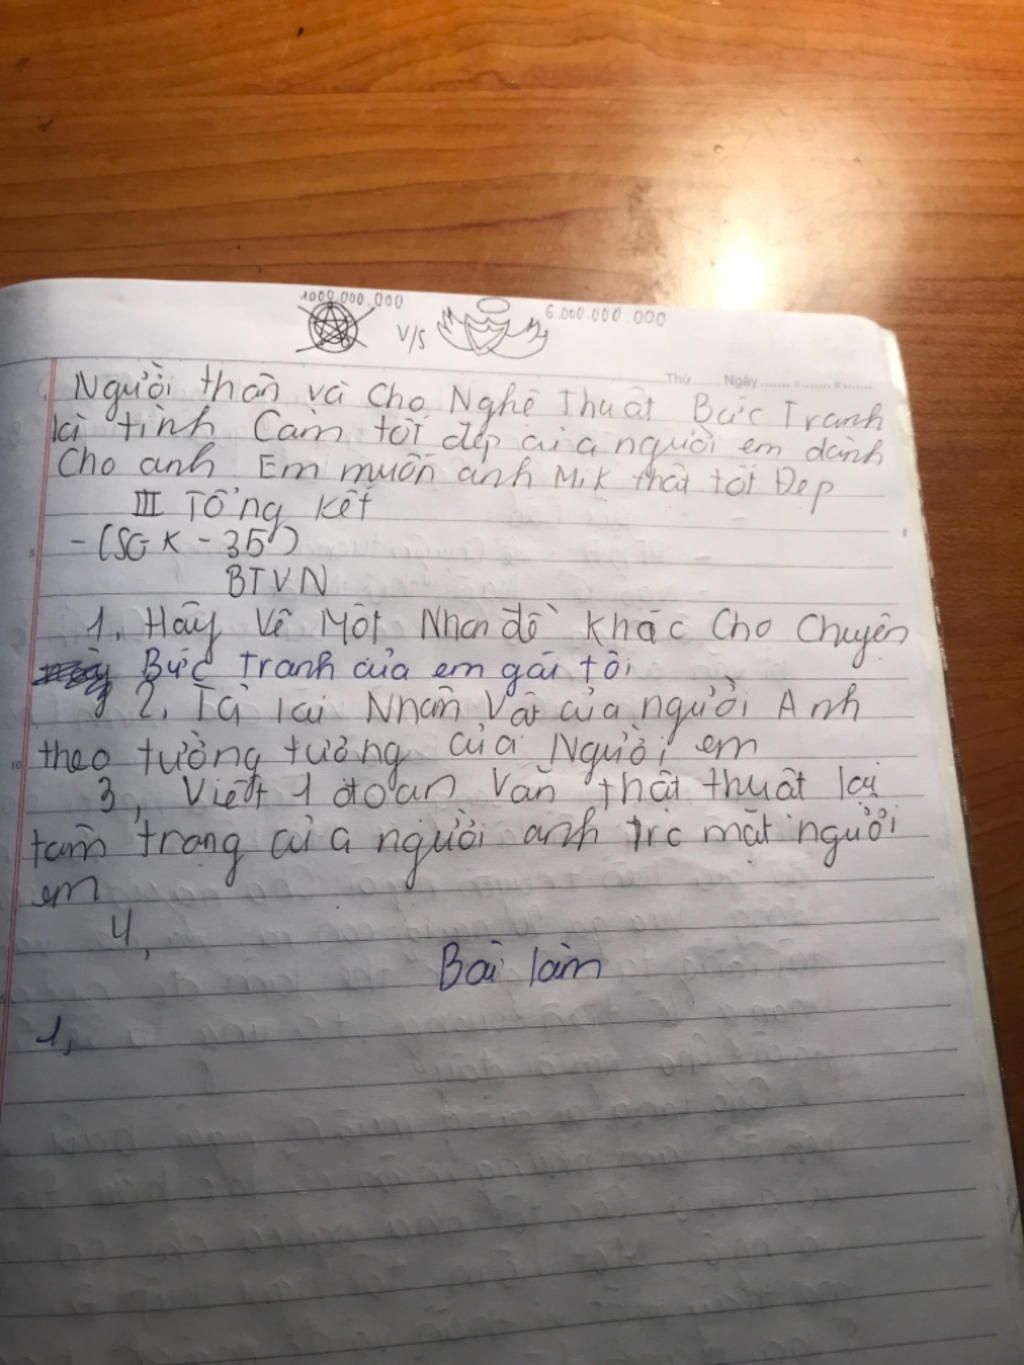 1000.000.000
V/S
6.000.000.000
Thứ Ngày
Người thân và cho Nghệ Thuật Bức Tranh
là tình Cảm tốt đẹp của người em dành
Cho anh Em muốn anh M.k thật tốt Đẹp
III Tổng kết
- (SGK - 35)
BTVN
1. Hãy Vẽ Một Nhan đề khác Cho Chuyện
Bức tranh của em gái tôi
2. Tả lại Nhân Vật của người Anh
theo tưởng tượng của Người em
3, Viết 1 đoạn Văn thật thuật lại
tâm trạng của người anh trc mặt người
em
4,
Bài làm
1,